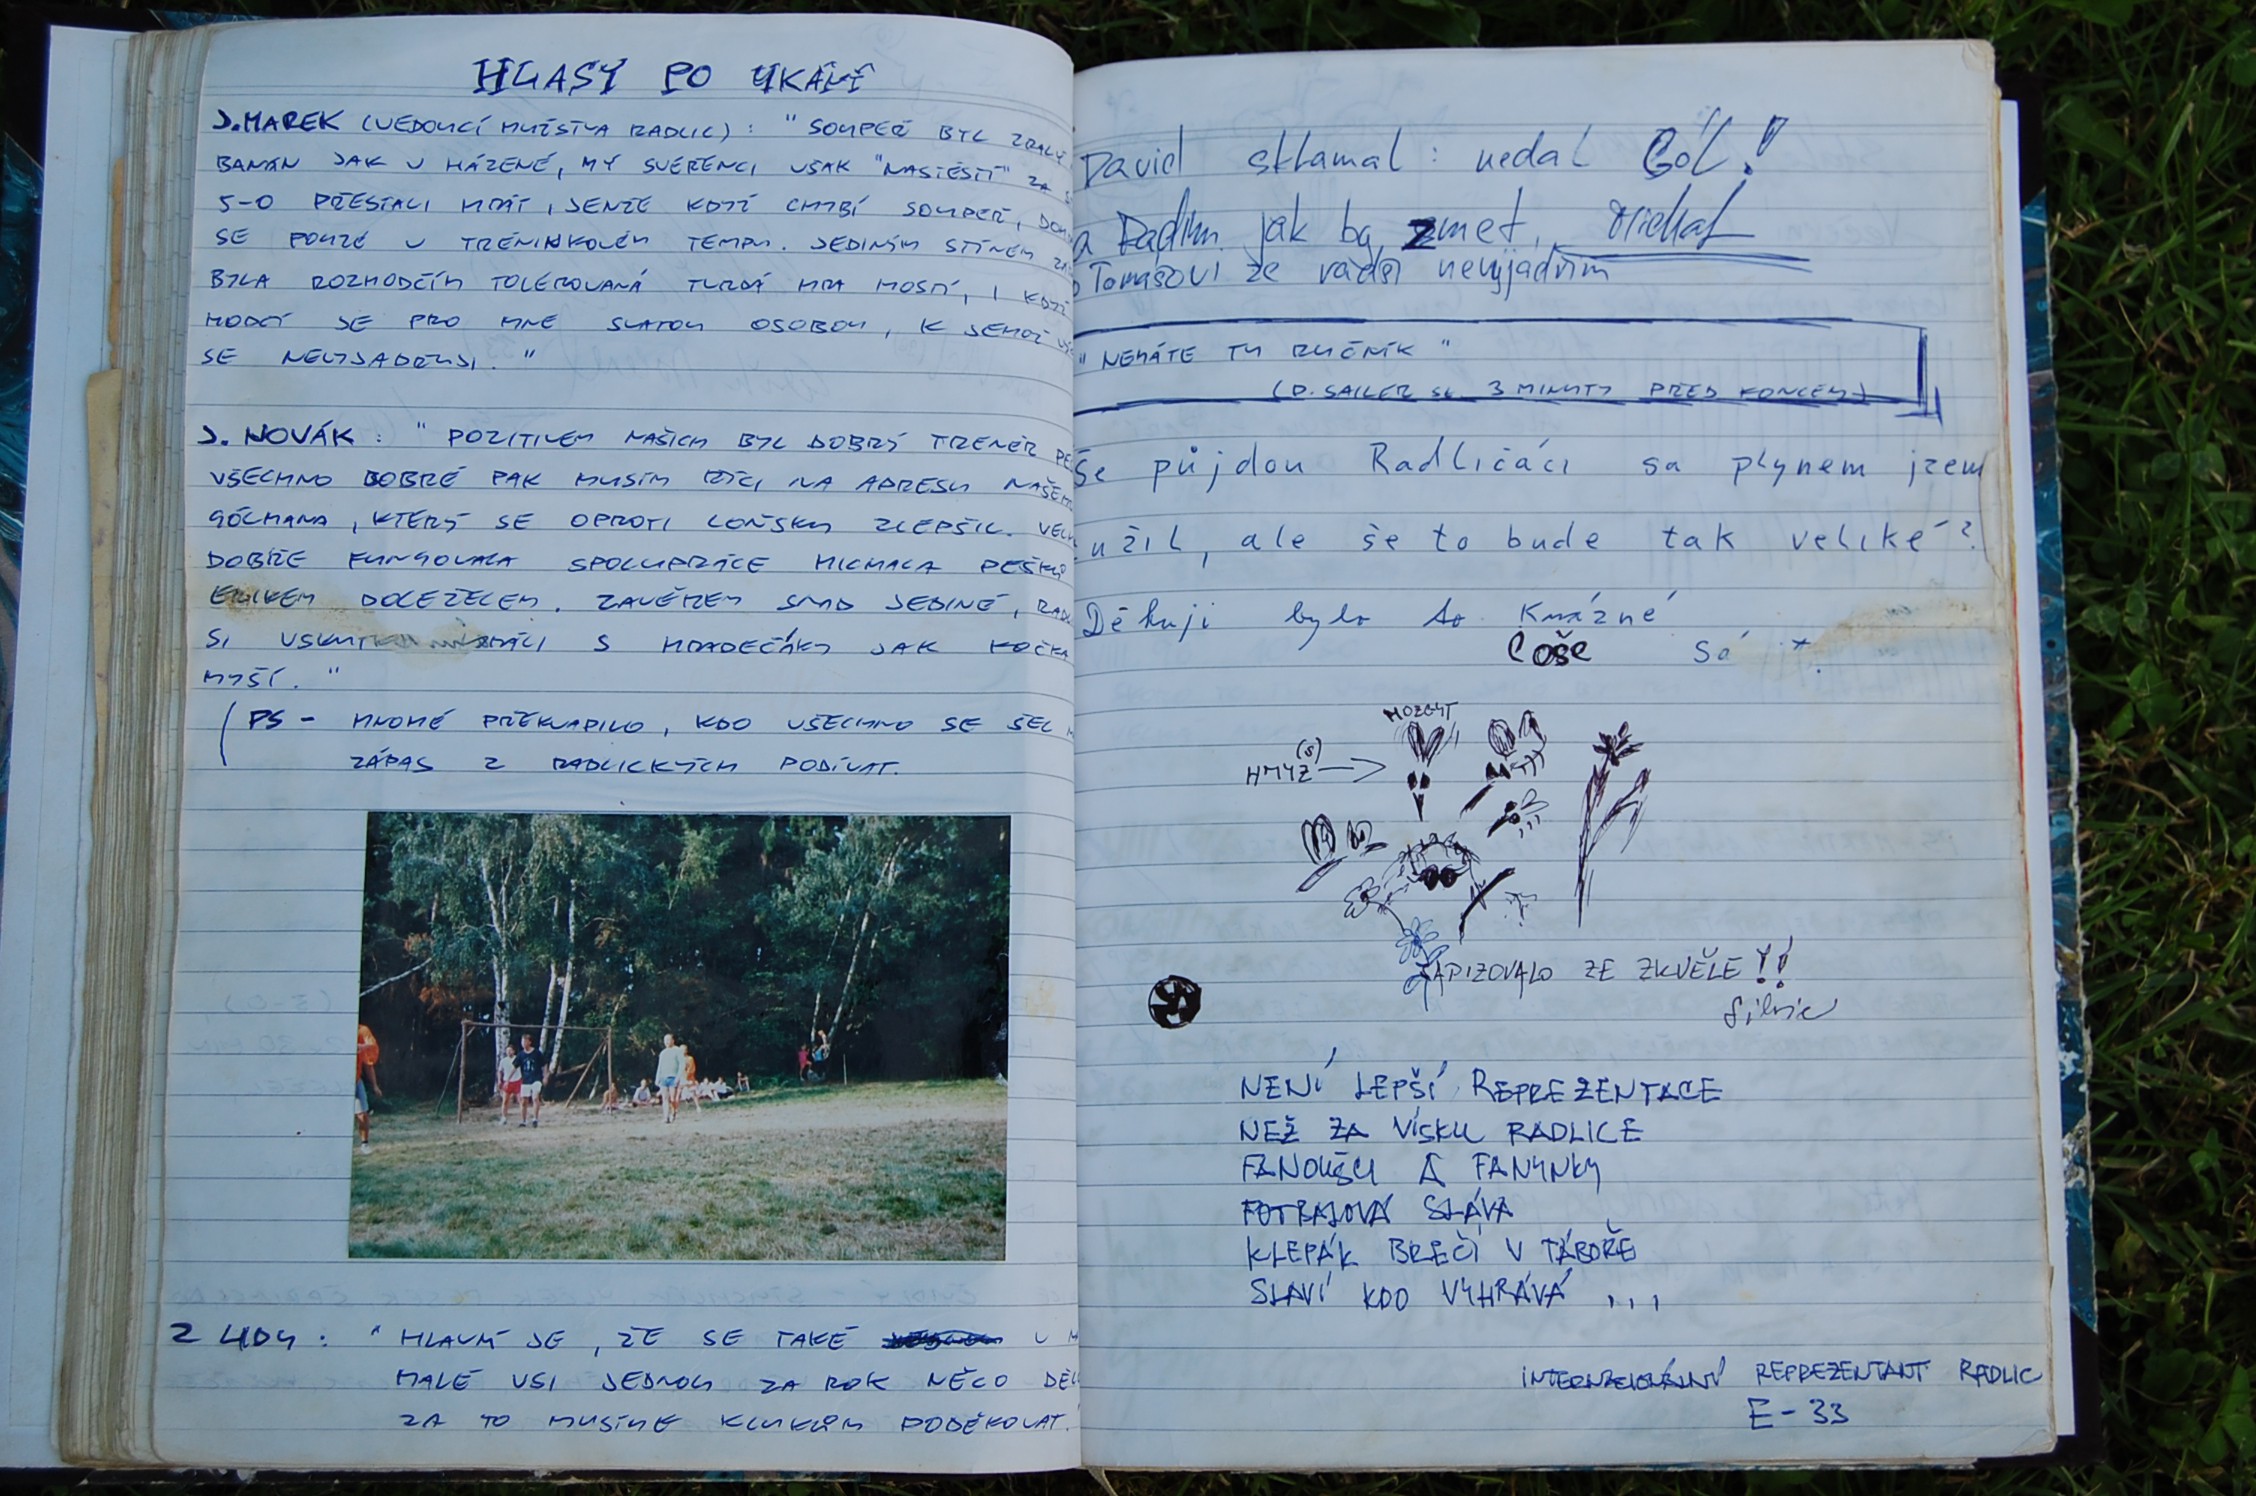 HLASY PO UKÁNÍ
J. MAREK (VEDOUCÍ MUŽSTVA RADLIC): "SOUPEŘ BYL ZRALÝ
BANÁN JAK V HÁZENÉ, MÝ SVĚŘENCI VŠAK "NAŠTĚSTÍ" ZA
5-0 PŘESTALI HRÁT, JENŽE KDYŽ CHYBÍ SOUPEŘ,
SE POUZE V TRÉNINKOVÉM TEMPU. JEDINÝM STÍNEM
BYLA ROZHODČÍM TOLEROVANÁ TVRDÁ HRA HOSTÍ, I KDYŽ
HODČÍ JE PRO MNE SVATOU OSOBOU, K JEHOŽ
SE NEVYJADŘUJI."
J. NOVÁK: "POZITIVEM NAŠICH BYL DOBRÝ TRENÉR
VŠECHNO DOBRÉ PAK MUSÍM ŘÍCI NA ADRESU NAŠEHO
GÓLMANA, KTERÝ SE OPROTI LOŇSKU ZLEPŠIL.
DOBŘE FUNGOVALA SPOLUPRÁCE MICHALA
ERIKEM DOLEŽELEM. ZÁVĚREM SNAD JEDINÉ,
SI S HRADEČÁKY JAK KOČKA
MYŠÍ."
PS - MNOHÉ PŘEKVAPILO, KDO VŠECHNO SE ŠEL
ZÁPAS Z RADLICKÝCH PODÍVAT.
Z LIDU: "HLAVNÍ JE, ŽE SE TAKÉ V
MALÉ VSI JEDNOU ZA ROK NĚCO
ZA TO MUSÍME KLUKŮM PODĚKOVAT.
David sklamal: nedal Gól!
a Radim jak by zmet, Michal
Tomášovi že radši nevyjadřim
"NEMÁTE TU RUČNÍK"
(D. SAILER St. 3 MINUTY PŘED KONCEM)
še půjdou Radličáci sa plynem jzem
užil, ale še to bude tak veliké?
Děkuji bylo to Krázné
Coše Só
MOZGYT
HMYZ (S)
ZE ZKVĚLE!!
Silvie
NENÍ LEPŠÍ REPREZENTACE
NEŽ ZA VÍSKU RADLICE
FANOUŠCI A FANYNKY
FOTBALOVÁ SLÁVA
KLEPÁK BREČÍ V TÁBOŘE
SLAVÍ KDO VYHRÁVÁ ...
REPREZENTANT RADLIC
E-33